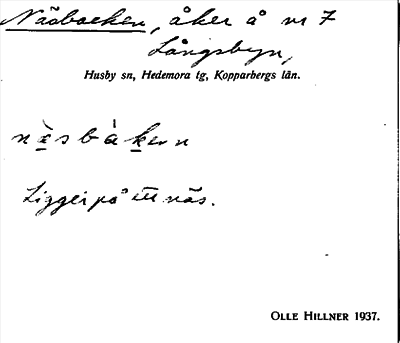 Näsbacken, åker å nr 7
Långsbyn,
Husby sn, Hedemora tg, Kopparbergs län.
nä̀sbàken
Ligger på ett näs.
OLLE HILLNER 1937.